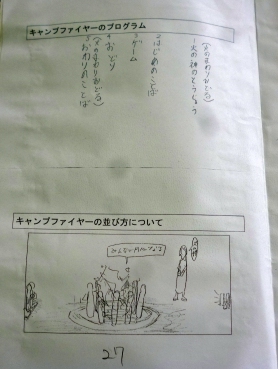 キャンプファイヤーのプログラム
(火のまわりにすわる)
1 火の神のとうじょう
2 はじめのことば
3 ゲーム
4 おどり
(火のまわりでおどる)
5 おわりのことば
キャンプファイヤーの並び方について
27